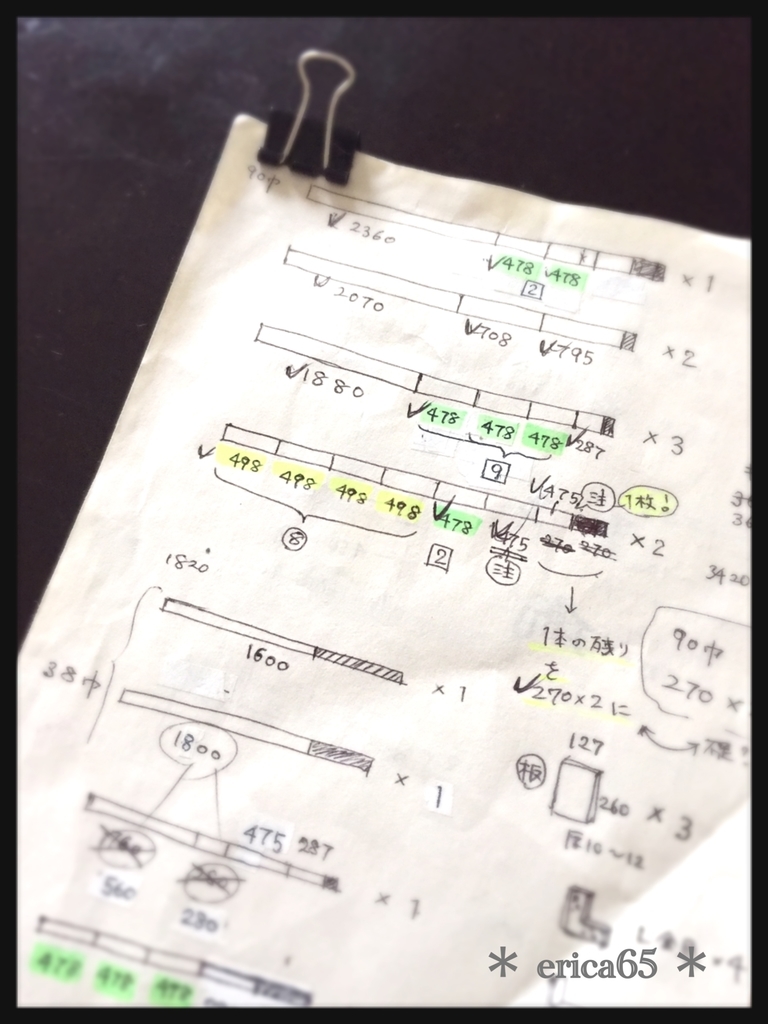 90巾
2360
478 478
2
×1
2070
708
795
×2
1880
478 478 478 287
9
×3
498 498 498 498 478 475
475 注 1枚!
8
2
注
270 270
×2
1820
1600
×1
38巾
1800
×1
475 287
560
230
×1
478 478 478
1本の残り
を
270×2に
3420
90巾
270 ×
127
板
260
×3
厚10~12
L
×4
* erica65 *